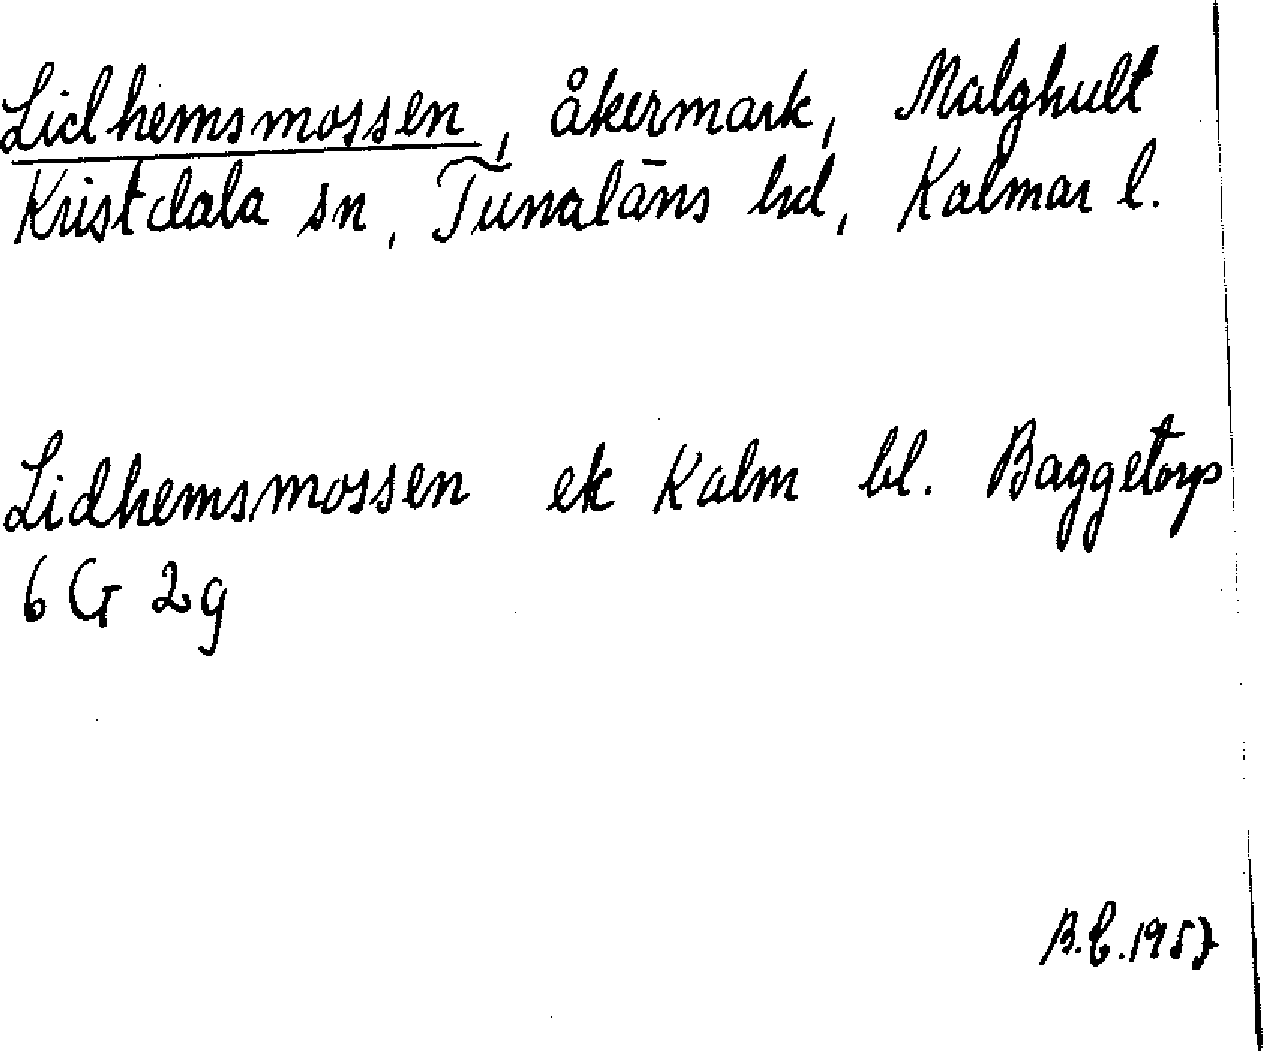 Lidhemsmossen, åkermark, Malghult
Kristdala sn, Tunaläns hd, Kalmar l.
Lidhemsmossen ek Kalm bl. Baggetorp
6 G 2g
B.C. 1957